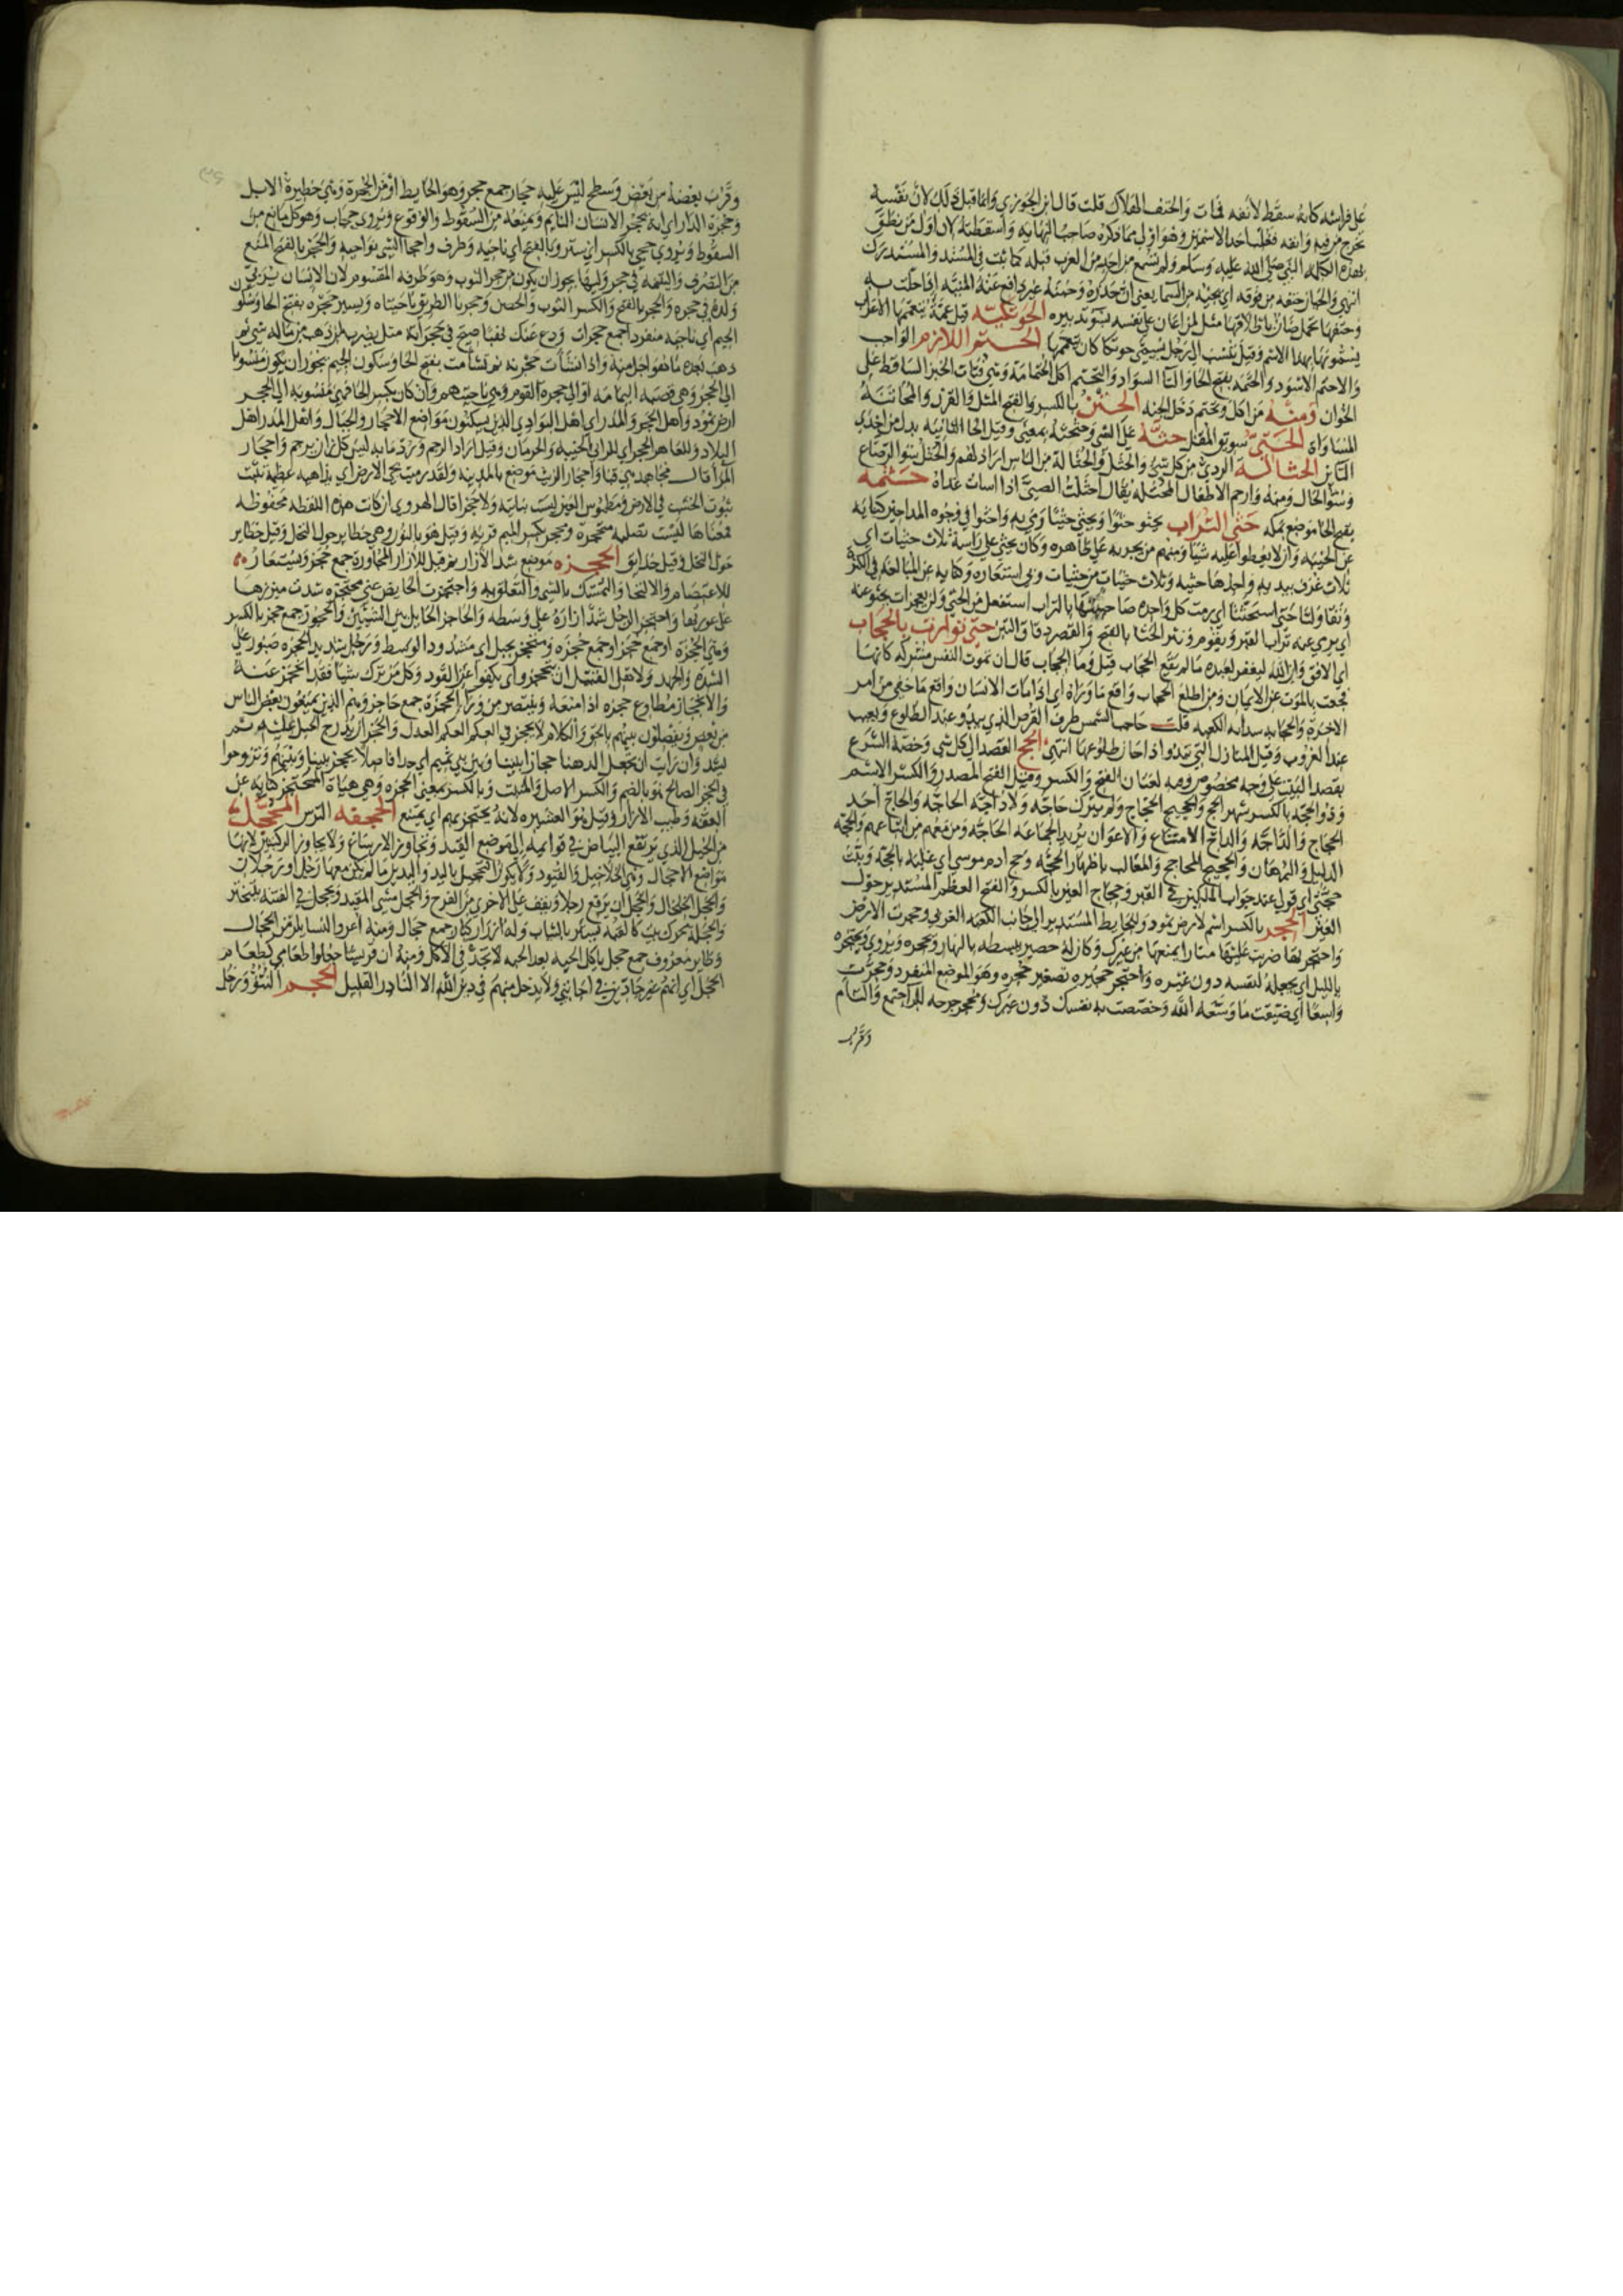 على فراشه كانه سقط لانفه فمات والحتف الهلاك قلت قال ابن الجوزي وانما قيل ذلك لان نفسه
تخرج من فيه وانفه فغلب احد الاسمين وهو اولى مما ذكره صاحب النهاية واسقطته لان اول من نطق
بهذه الكلمه النبي صلى الله عليه وسلم ولم تسمع من احد من العرب قبله كما ثبت في المسند والمستدرك
انتهى والجبان حتفه من فوقه اي يجيئه من السما يعني ان حذره وجبنه غير دافع عنه المنيه اذا حلت به
وحتفها تحمل ضان باظلافها مثل لمن اعان على نفسه بسوء تدبيره الحوتكيه قيل عمة يتعممها الاعراب
يسمونها بهذا الاسم وقيل تنسب الى رجل يسمى حوتكا كان يتعممها الحتم اللازم الواجب
والاحتم الاسود والحتمه بفتح الحا والتا السواد والتحتم اكل الحتامة وهي فتات الخبز الساقط على
الخوان ومنه من اكل وتحتم دخل الجنه الحتن بالكسر والفتح المثل والقرن والمحاتنة
المساواة الحتي سويق المقل حثه على الشي وحثحثه بمعنى وقيل الحا الثانيه بدل من احدى
التاين الحثالة الردي من كل شي والحثل والحثالة من الناس اراذلهم والحثل سو الرضاع
وسو الحال ومنه وارحم الاطفال المحثله يقال احثلت الصبي اذا اسات غذاه حثمه
بفتح الحا موضع بمكه حثى التراب يحثو حثوا ويحثي حثيا رمى به واحثوا في وجوه المداحين كنايه
عن الخيبه وان لا يعطوا عليه شيا ومنهم من يجريه على ظاهره وكان يحثي على راسه ثلاث حثيات اي
ثلاث غرف بيديه واحدها حثيه وثلاث حثيات من حثيات ربي استعارة وكنايه عن المبالغه في الكثرة
اي يرمي عنه تراب القبر ويقوم والحثا بالفتح والقصر دقاق التبن حتى توارت بالحجاب
اي الافق وان الله ليغفر لعبده ما لم يقع الحجاب قيل وما الحجاب قال ان تموت النفس مشركه كانها
حجبت بالموت عن الايمان ومن اطلع الحجاب واقع ما وراه اي اذا مات الانسان واقع ما خفي من امر
الاخرة والحجابه سدانه الكعبه قلت حاجب الشمس طرف القرص الذي يبدو عند الطلوع ويغيب
عند الغروب وقيل المنازل التي تبدو اذا حان طلوعها انتهى الحج القصد الى كل شي وخصه الشرع
بقصد البيت على وجه مخصوص وفيه لغتان الفتح والكسر وقيل الفتح المصدر والكسر الاسم
وذو الحجه بالكسر شهر الحج والحجيج الحجاج ولم يترك حاجه ولا داجه الحاجه والحاج احد
الحجاج والداجه والداج الاتباع والاعوان يريد الجماعه الحاجه ومن معهم من اتباعهم والحجه
الدليل والبرهان والحجيج المحاجج والمغالب باظهار الحجه وحج ادم موسى اي غلبه بالحجه وثبت
حجتي اي قولي عند جواب الملكين في القبر وحجاج العين بالكسر والفتح العظم المستدير حول
العين الحجر بالكسر اسم لارض ثمود وللحايط المستدير الى جانب الكعبه الغربي وحجرت الارض
واحتجرتها ضربت عليها منارا يمنعها من غيرك وكان له حصير يبسطه بالنهار ويحجره ويروى ويحتجره
بالليل اي يجعله لنفسه دون غيره واحتجر حجيرة تصغير حجره وهو الموضع المنفرد وتحجرت
واسعا اي ضيقت ما وسعه الله وخصصت به نفسك دون غيرك وتحجر جرحه للبر اجتمع والتام
وقرب
وقرب بعضه من بعض وسطح ليس عليه حجار جمع حجر وهو الحايط او من الحجرة وهي حظيرة الابل
وحجرة الدار اي انه يحجر الانسان النايم ويمنعه من السقوط والوقوع ويروى حجاب وهو كل مانع من
السقوط ويروى حجى بالكسر اي ستر وبالفتح اي ناحيه وطرف واحجا الشي نواحيه والحجر بالفتح المنع
من التصرف واليتيمه في حجر وليها يجوز ان يكون من حجر الثوب وهو طرفه المقسوم لان الانسان يربي
ولده في حجره والحجر بالفتح والكسر الثوب والحصن وحجرتا الطريق ناحيتاه ويسير حجرة بفتح الحا وسكون
الجيم اي ناحيه منفردا جمع حجرات ودع عنك نهبا صيح في حجراته مثل يضرب لمن ذهب من ماله شي ثم
ذهب بعده ما هو اجل منه واذا نشات حجريه ثم تشامت بفتح الحا وسكون الجيم يجوز ان يكون منسوبا
الى الحجر وهي قصبه اليمامه او الى حجرة القوم وهي ناحيتهم وان كان بكسر الحا فهي منسوبة الى الحجر
ارض ثمود واهل الحجر والمدر اي اهل البوادي الذين يسكنون مواضع الاحجار والجبال واهل المدر اهل
البلاد وللعاهر الحجر اي للزاني الخيبه والحرمان وقيل اراد الرجم ورد بانه ليس كل زان يرجم واحجار
المرا قال مجاهد هي قبا واحجار الزيت موضع بالمدينه ولقد رميت بحجر الارض اي بداهيه عظيمه تثبت
ثبوت الحجر في الارض ومطموس العين ليست بناتيه ولا حجرا قال الهروي ان كانت هذه اللفظه محفوظه
فمعناها ليست بصلبه متحجرة ومحجر بكسر الميم قريه وقيل هو بالنون وهي حظاير حول النخل وقيل حظاير
حول النخل وقيل حدايق الحجزه موضع شد الازار ثم قيل للازار للمجاورة جمع حجز وتستعار
للاعتصام والالتجا والتمسك بالشي والتعلق به واحتجزت الحايض عني محتجزه شدت ميزرها
على عورتها واحتجز الرجل شد ازاره على وسطه والحاجز الحايل بين الشيئين والحجوز جمع حجز بالكسر
وهي الحجزة او جمع حجز او جمع حجزه ومتحجز بحبل اي مشدود الوسط ورجل شديد الحجزه صبور على
الشدة والجهد ولاهل القتيل ان يتحجزوا اي يكفوا عن القود وكل من ترك شيا فقد انحجز عنه
والانحجاز مطاوع حجزه اذا منعه وينتصر من وراء الحجزة جمع حاجز وهم الذين يمنعون بعض الناس
من بعض ويفصلون بينهم بالحق والكلام لا يحجز في العكم العكم العدل والحجز ان يدرج الحبل عليه ثم
يشد وان رايت ان تجعل الدهنا حجازا بيننا وبين بني تميم اي حدا فاصلا يحجز بيننا وبينهم وتزوجوا
في الحجز الصالح هو بالضم والكسر الاصل والمنبت وبالكسر بمعنى الحجزه وهي هياة المحتجز كنايه عن
العفه وطيب الازار وقيل هو العشيره لانه يحتجز بهم اي يمتنع الحجفه الترس المحجل
من الخيل الذي يرتفع البياض في قوايمه الى موضع القيد وتجاوز الارساغ ولا يجاوز الركبتين لانها
مواضع الاحجال وهي الخلاخيل والقيود ولا يكون التحجيل باليد واليدين ما لم يكن معها رجل او رجلان
والحجل الخلخال والحجل ان يرفع رجلا ويقف على الاخرى من الفرح والحجل مشي المقيد ويحجل في الفتنه يتبختر
والحجله بحرك بيت كالقبه يستر بالثياب وله ازرار كبار جمع حجال ومنه اعروا النسا يلزمن الحجال
وطاير معروف جمع حجل ياكل الحبه بعد الحبه لا يجد في الاكل ومنه ان قريشا جعلوا طعامي كطعام
الحجل اي انهم غير جادين في اجابتي ولا يدخل منهم في دين الله الا النادر القليل الحجم النتو ورجل